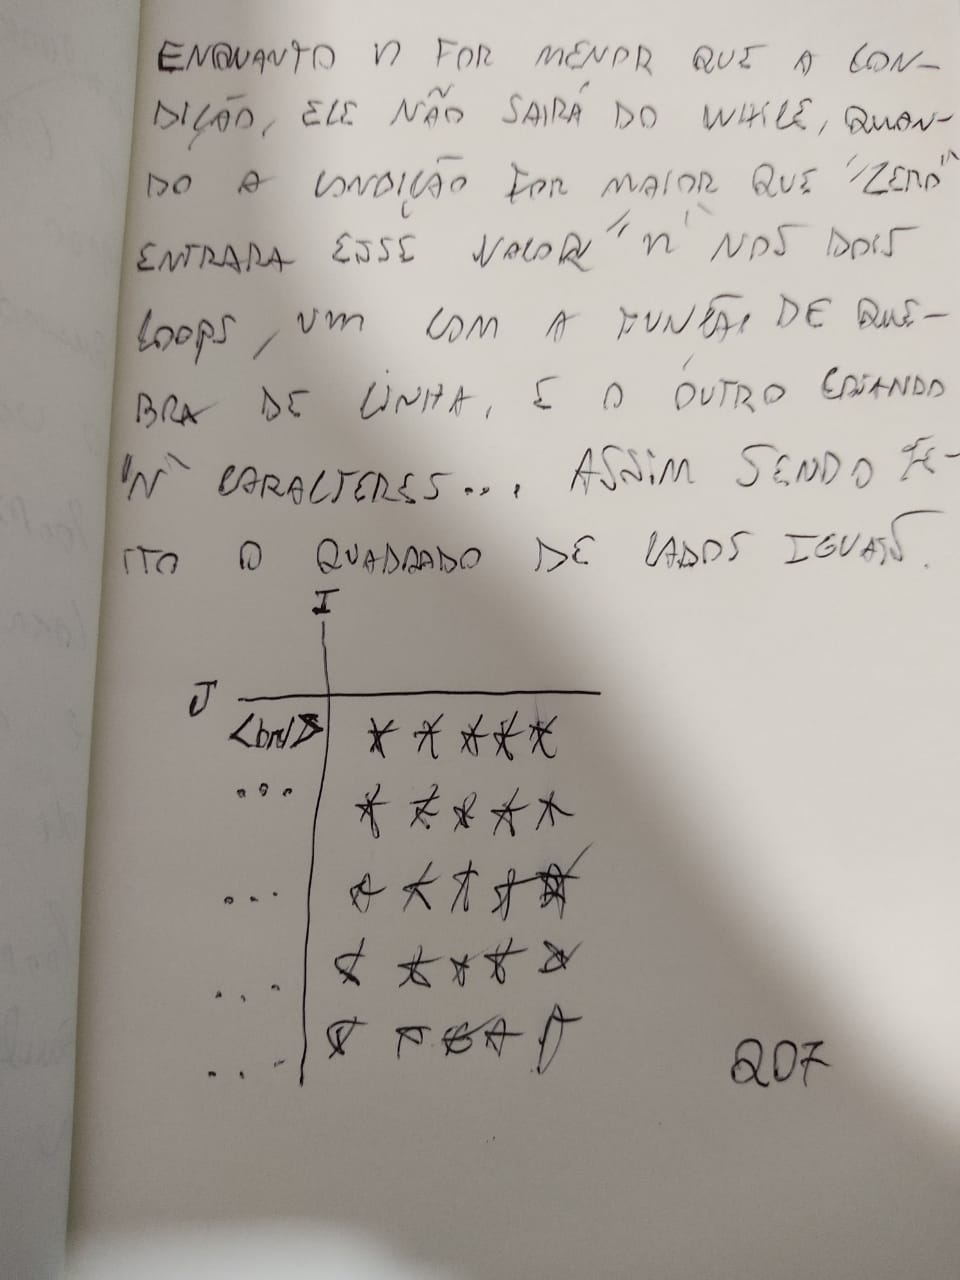 ENQUANTO n FOR MENOR QUE A CON-
DIÇÃO, ELE NÃO SAIRÁ DO WHILE, QUAN-
DO A CONDIÇÃO FOR MAIOR QUE "ZERO"
ENTRARA ESSE VALOR "n" NOS DOIS
LOOPS, UM COM A FUNÇÃO DE QUE-
BRA DE LINHA, E O OUTRO CRIANDO
"N" CARACTERES... ASSIM SENDO FE-
ITO O QUADRADO DE LADOS IGUAIS.
I
J
<br/> * * * * *
... * * * * *
... * * * * *
... * * * * *
... * * * * *
Q07